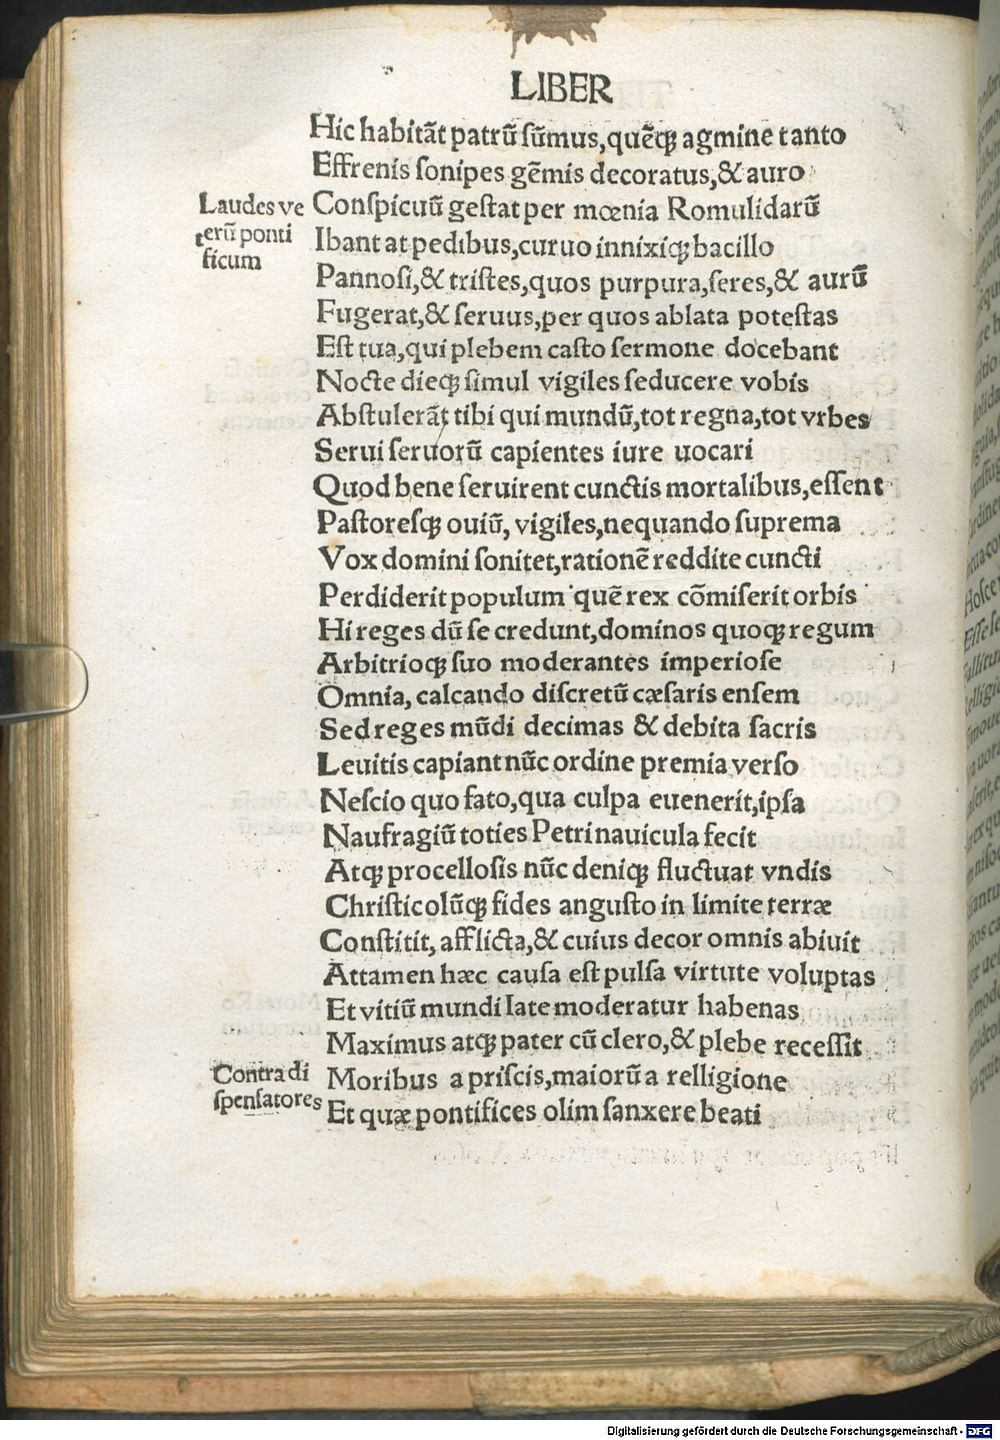 LIBER
Hic habitãt patrũ sũmus,quẽqꝫ agmine tanto
Effrenis sonipes gẽmis decoratus,& auro
Laudes ve
terũ ponti
ficum
Conspicuũ gestat per mœnia Romulidarũ
Ibant at pedibus,curuo innixiqꝫ bacillo
Pannosi,& tristes,quos purpura,seres,& aurũ
Fugerat,& seruus,per quos ablata potestas
Est tua,qui plebem casto sermone docebant
Nocte dieqꝫ simul vigiles seducere vobis
Abstulerãt tibi qui mundũ,tot regna,tot vrbes
Serui seruorũ capientes iure uocari
Quod bene seruirent cunctis mortalibus,essent
Pastoresqꝫ ouiũ, vigiles,nequando suprema
Vox domini sonitet,rationẽ reddite cuncti
Perdiderit populum quẽ rex cõmiserit orbis
Hi reges dũ se credunt,dominos quoqꝫ regum
Arbitrioqꝫ suo moderantes imperiose
Omnia, calcando discretũ cæsaris ensem
Sed reges mũdi decimas & debita sacris
Leuitis capiant nũc ordine premia verso
Nescio quo fato,qua culpa euenerit,ipsa
Naufragiũ toties Petri nauicula fecit
Atqꝫ procellosis nũc deniqꝫ fluctuat vndis
Christicolũqꝫ fides angusto in limite terræ
Constitit, afflicta,& cuius decor omnis abiuit
Attamen hæc causa est pulsa virtute voluptas
Et vitiũ mundi late moderatur habenas
Maximus atqꝫ pater cũ clero,& plebe recessit
Contra di
spensatores
Moribus a priscis,maiorũ a relligione
Et quæ pontifices olim sanxere beati
Digitalisierung gefördert durch die Deutsche Forschungsgemeinschaft - DFG